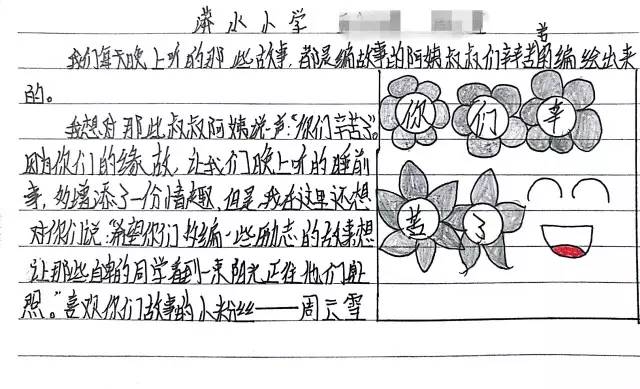 漭水小学
我们每天晚上听的那些故事，都是编故事的阿姨叔叔们辛苦的编绘出来
苦
的。
我想对那些叔叔阿姨说一声：“你们辛苦了。
因为你们的缘故，让我们晚上听的睡前
事，多增添了一份情趣。但是，我在这里还想
对你们说：希望你们多编一些励志的故事想
让那些自卑的同学看到一束阳光正往他们身
照。”喜欢你们故事的小粉丝——周云雪
你们辛
苦了